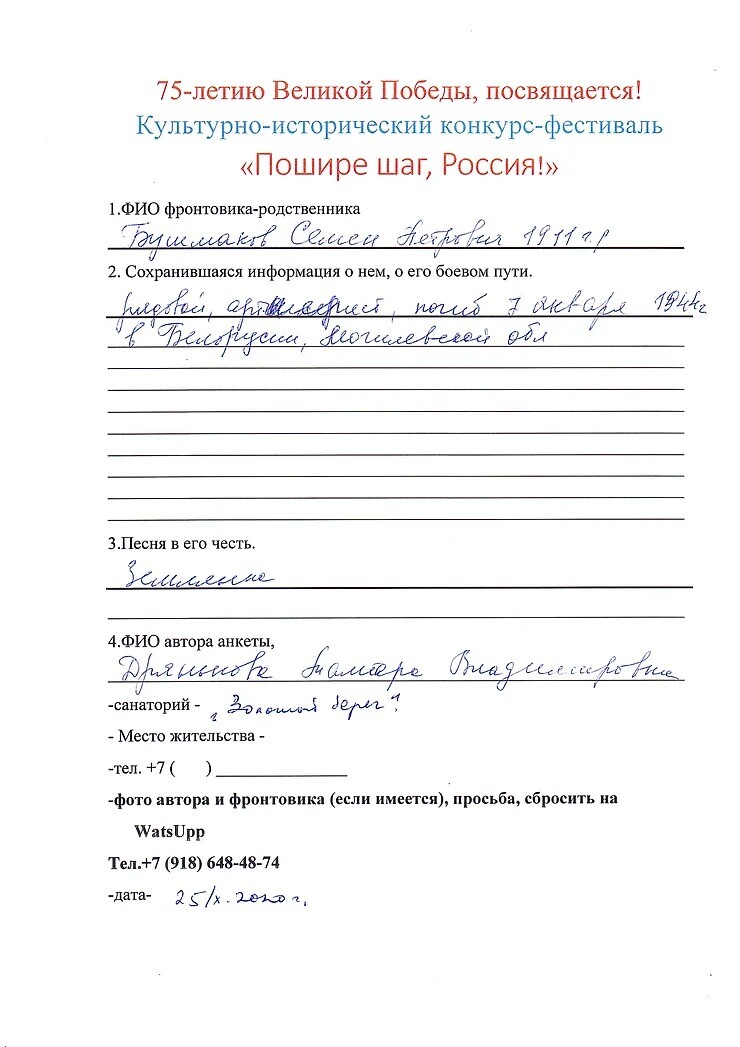 75-летию Великой Победы, посвящается!
Культурно-исторический конкурс-фестиваль
«Пошире шаг, Россия!»
1.ФИО фронтовика-родственника
Бушмаков Семен Петрович 1911 г.р
2. Сохранившаяся информация о нем, о его боевом пути.
рядовой, артиллерист, погиб 7 января 1944г
в Белорусии, Могилевской обл
3.Песня в его честь.
Землянка
4.ФИО автора анкеты,
Тамара Владимировна
-санаторий - „Золотой берег"
- Место жительства -
-тел. +7 ( ) _______________
-фото автора и фронтовика (если имеется), просьба, сбросить на
WatsUpp
Тел.+7 (918) 648-48-74
-дата- 25/X.2020г.